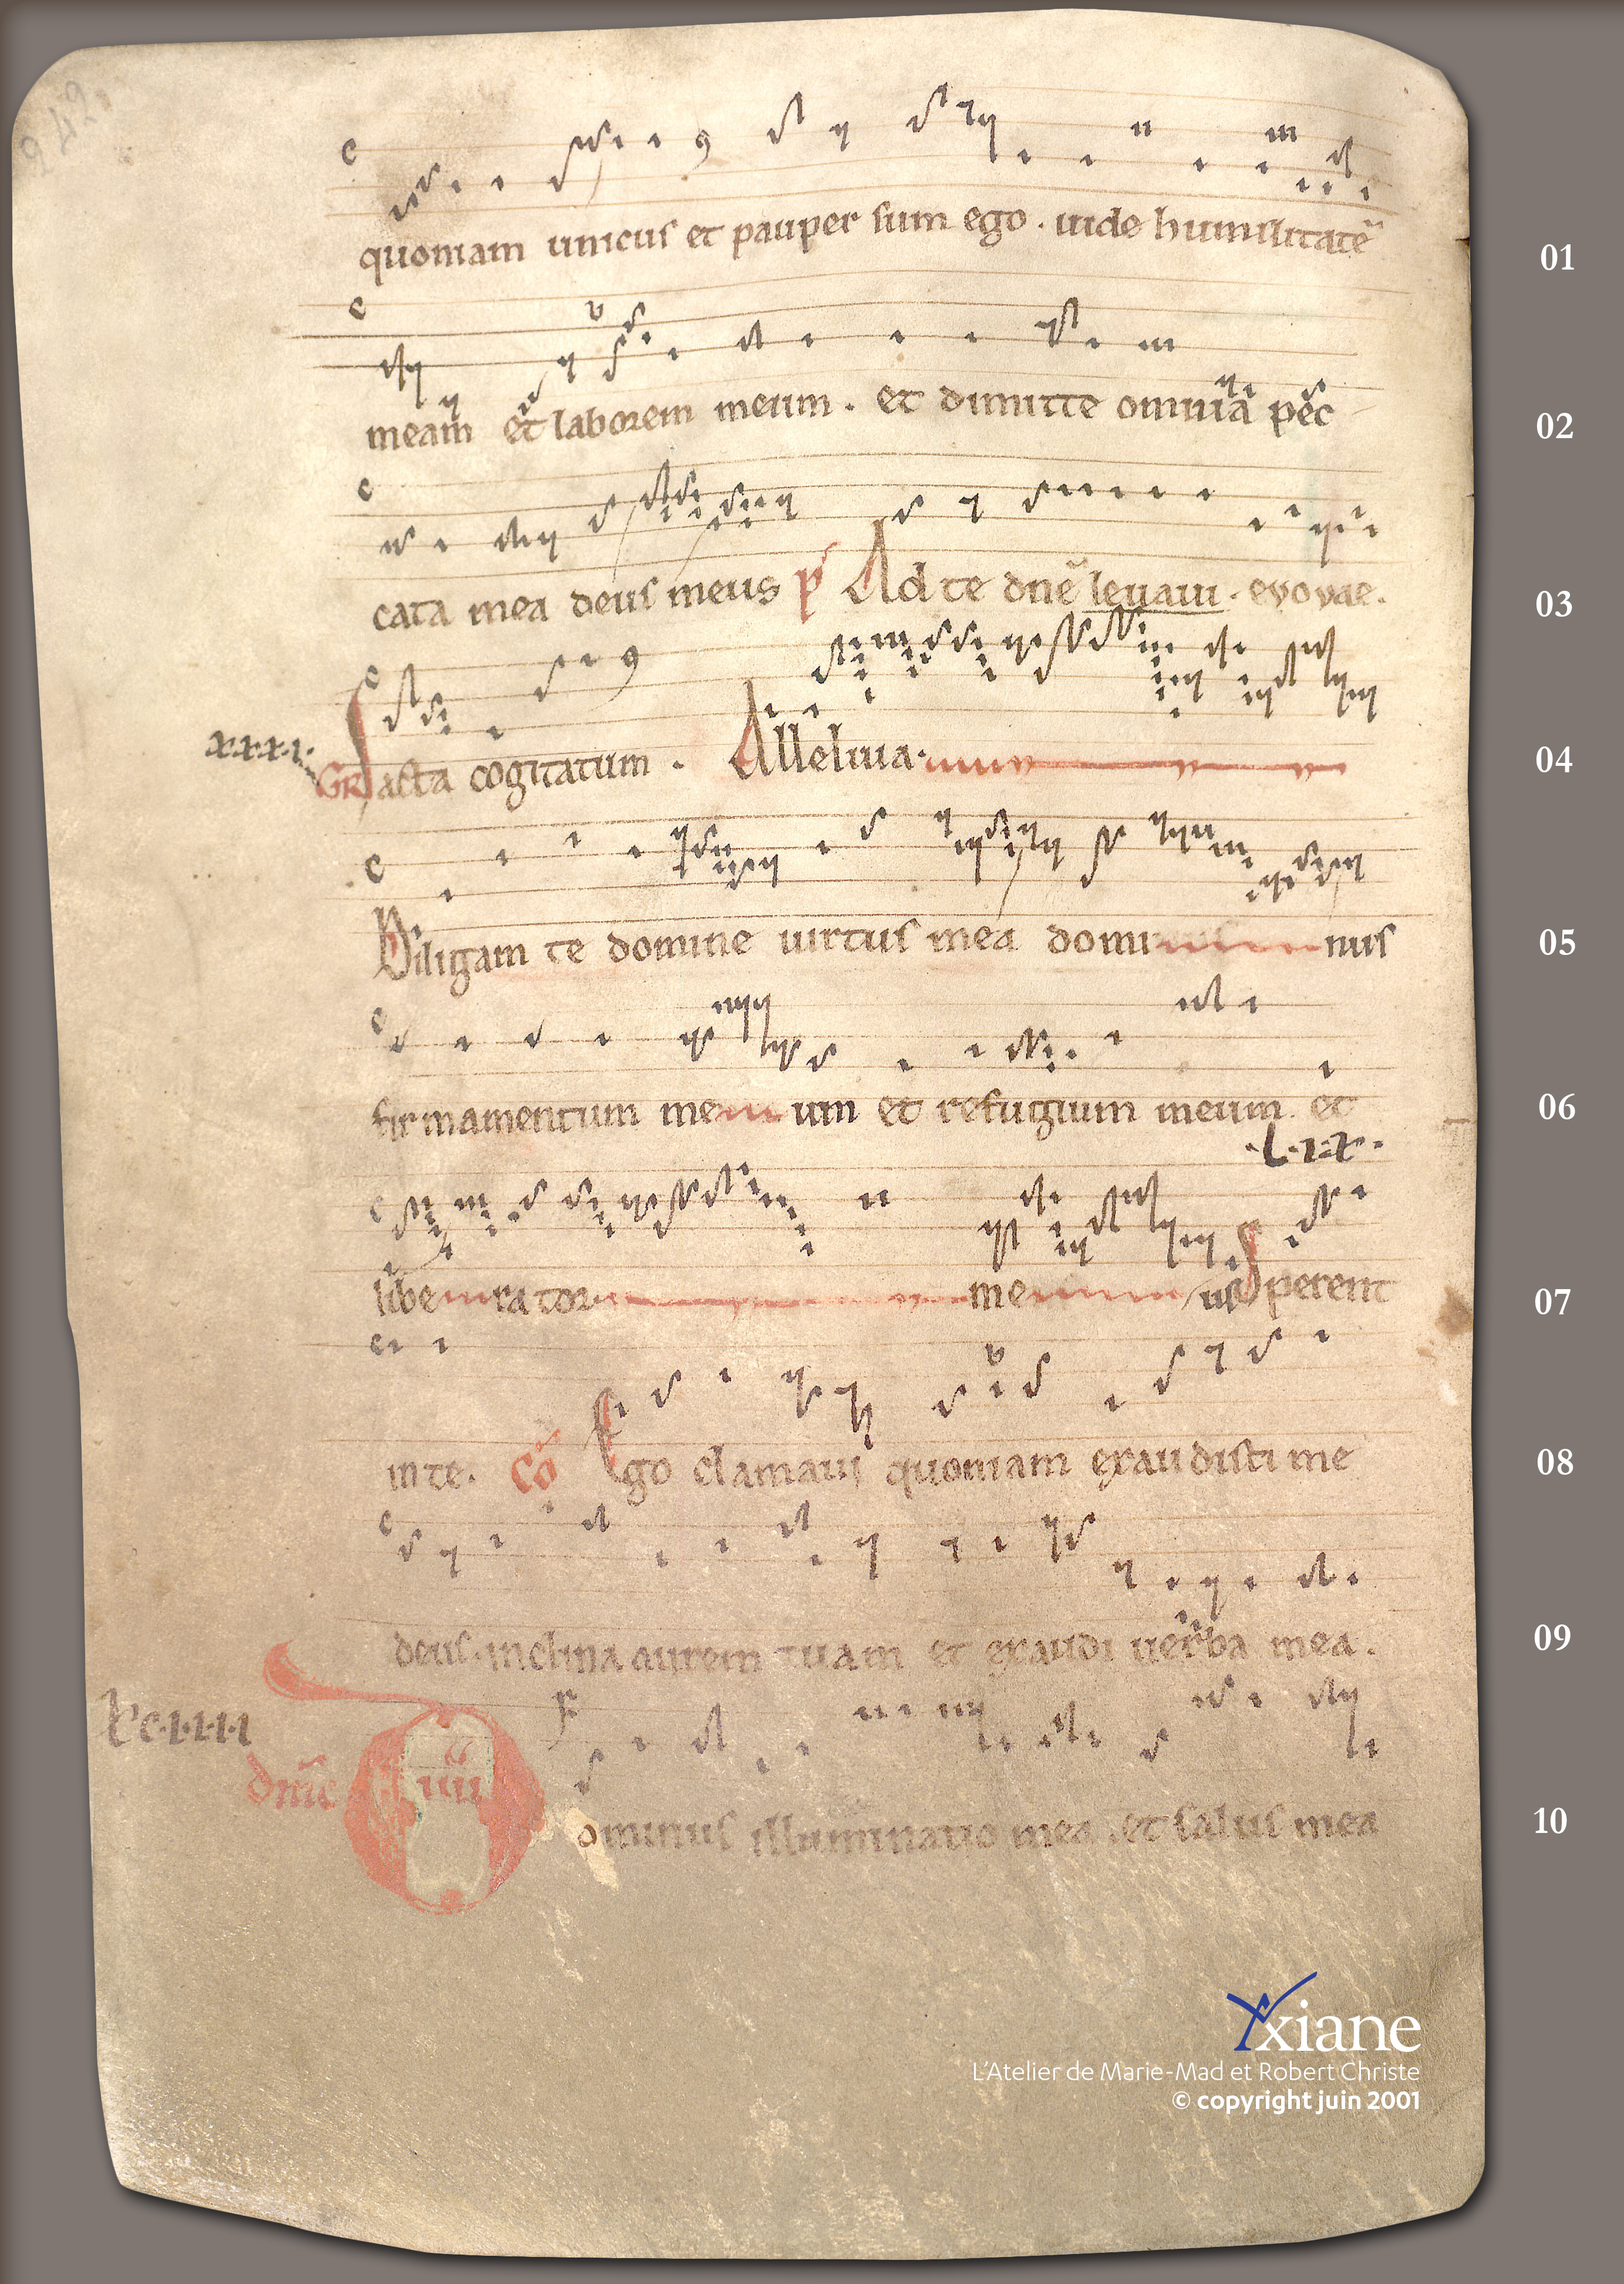 242
quoniam unicus et pauper sum ego . uide humilitatē 01
meam et laborem meum . et dimitte omnia pec 02
cata mea deus meus p̄ Ad te dn̄e leuaui . evovae . 03
x.x.x.1. GR Iacta cogitatum . Alleluia . 04
Diligam te domine uirtus mea domi nus 05
firmamentum me um et refugium meum . et 06
.L.ix.
libe ra tor me us Sperent 07
in te . Cō Ego clamaui quoniam exaudisti me 08
deus . inclina aurem tuam et exaudi uerba mea . 09
dn̄ic iiii Dominus illuminatio mea . et salus mea 10
Yxiane
L'Atelier de Marie-Mad et Robert Christe
© copyright juin 2001